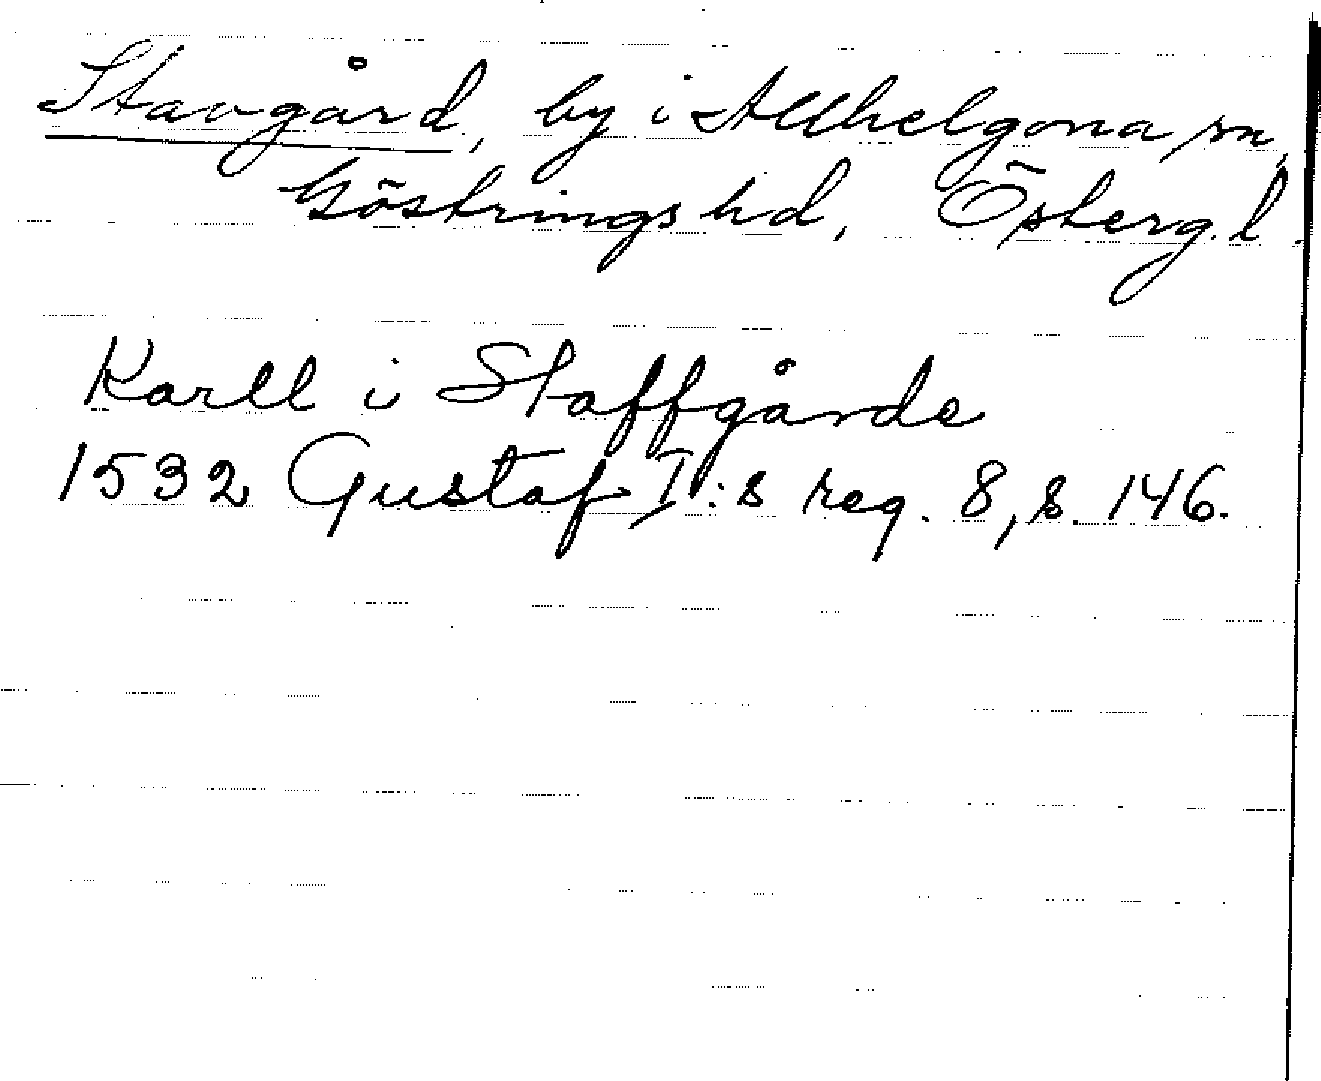 Stavgård, by i Allhelgona sn,
Göstrings hd, Österg. l.
Karll i Staffgårde
1532 Gustaf I:s reg. 8, s. 146.